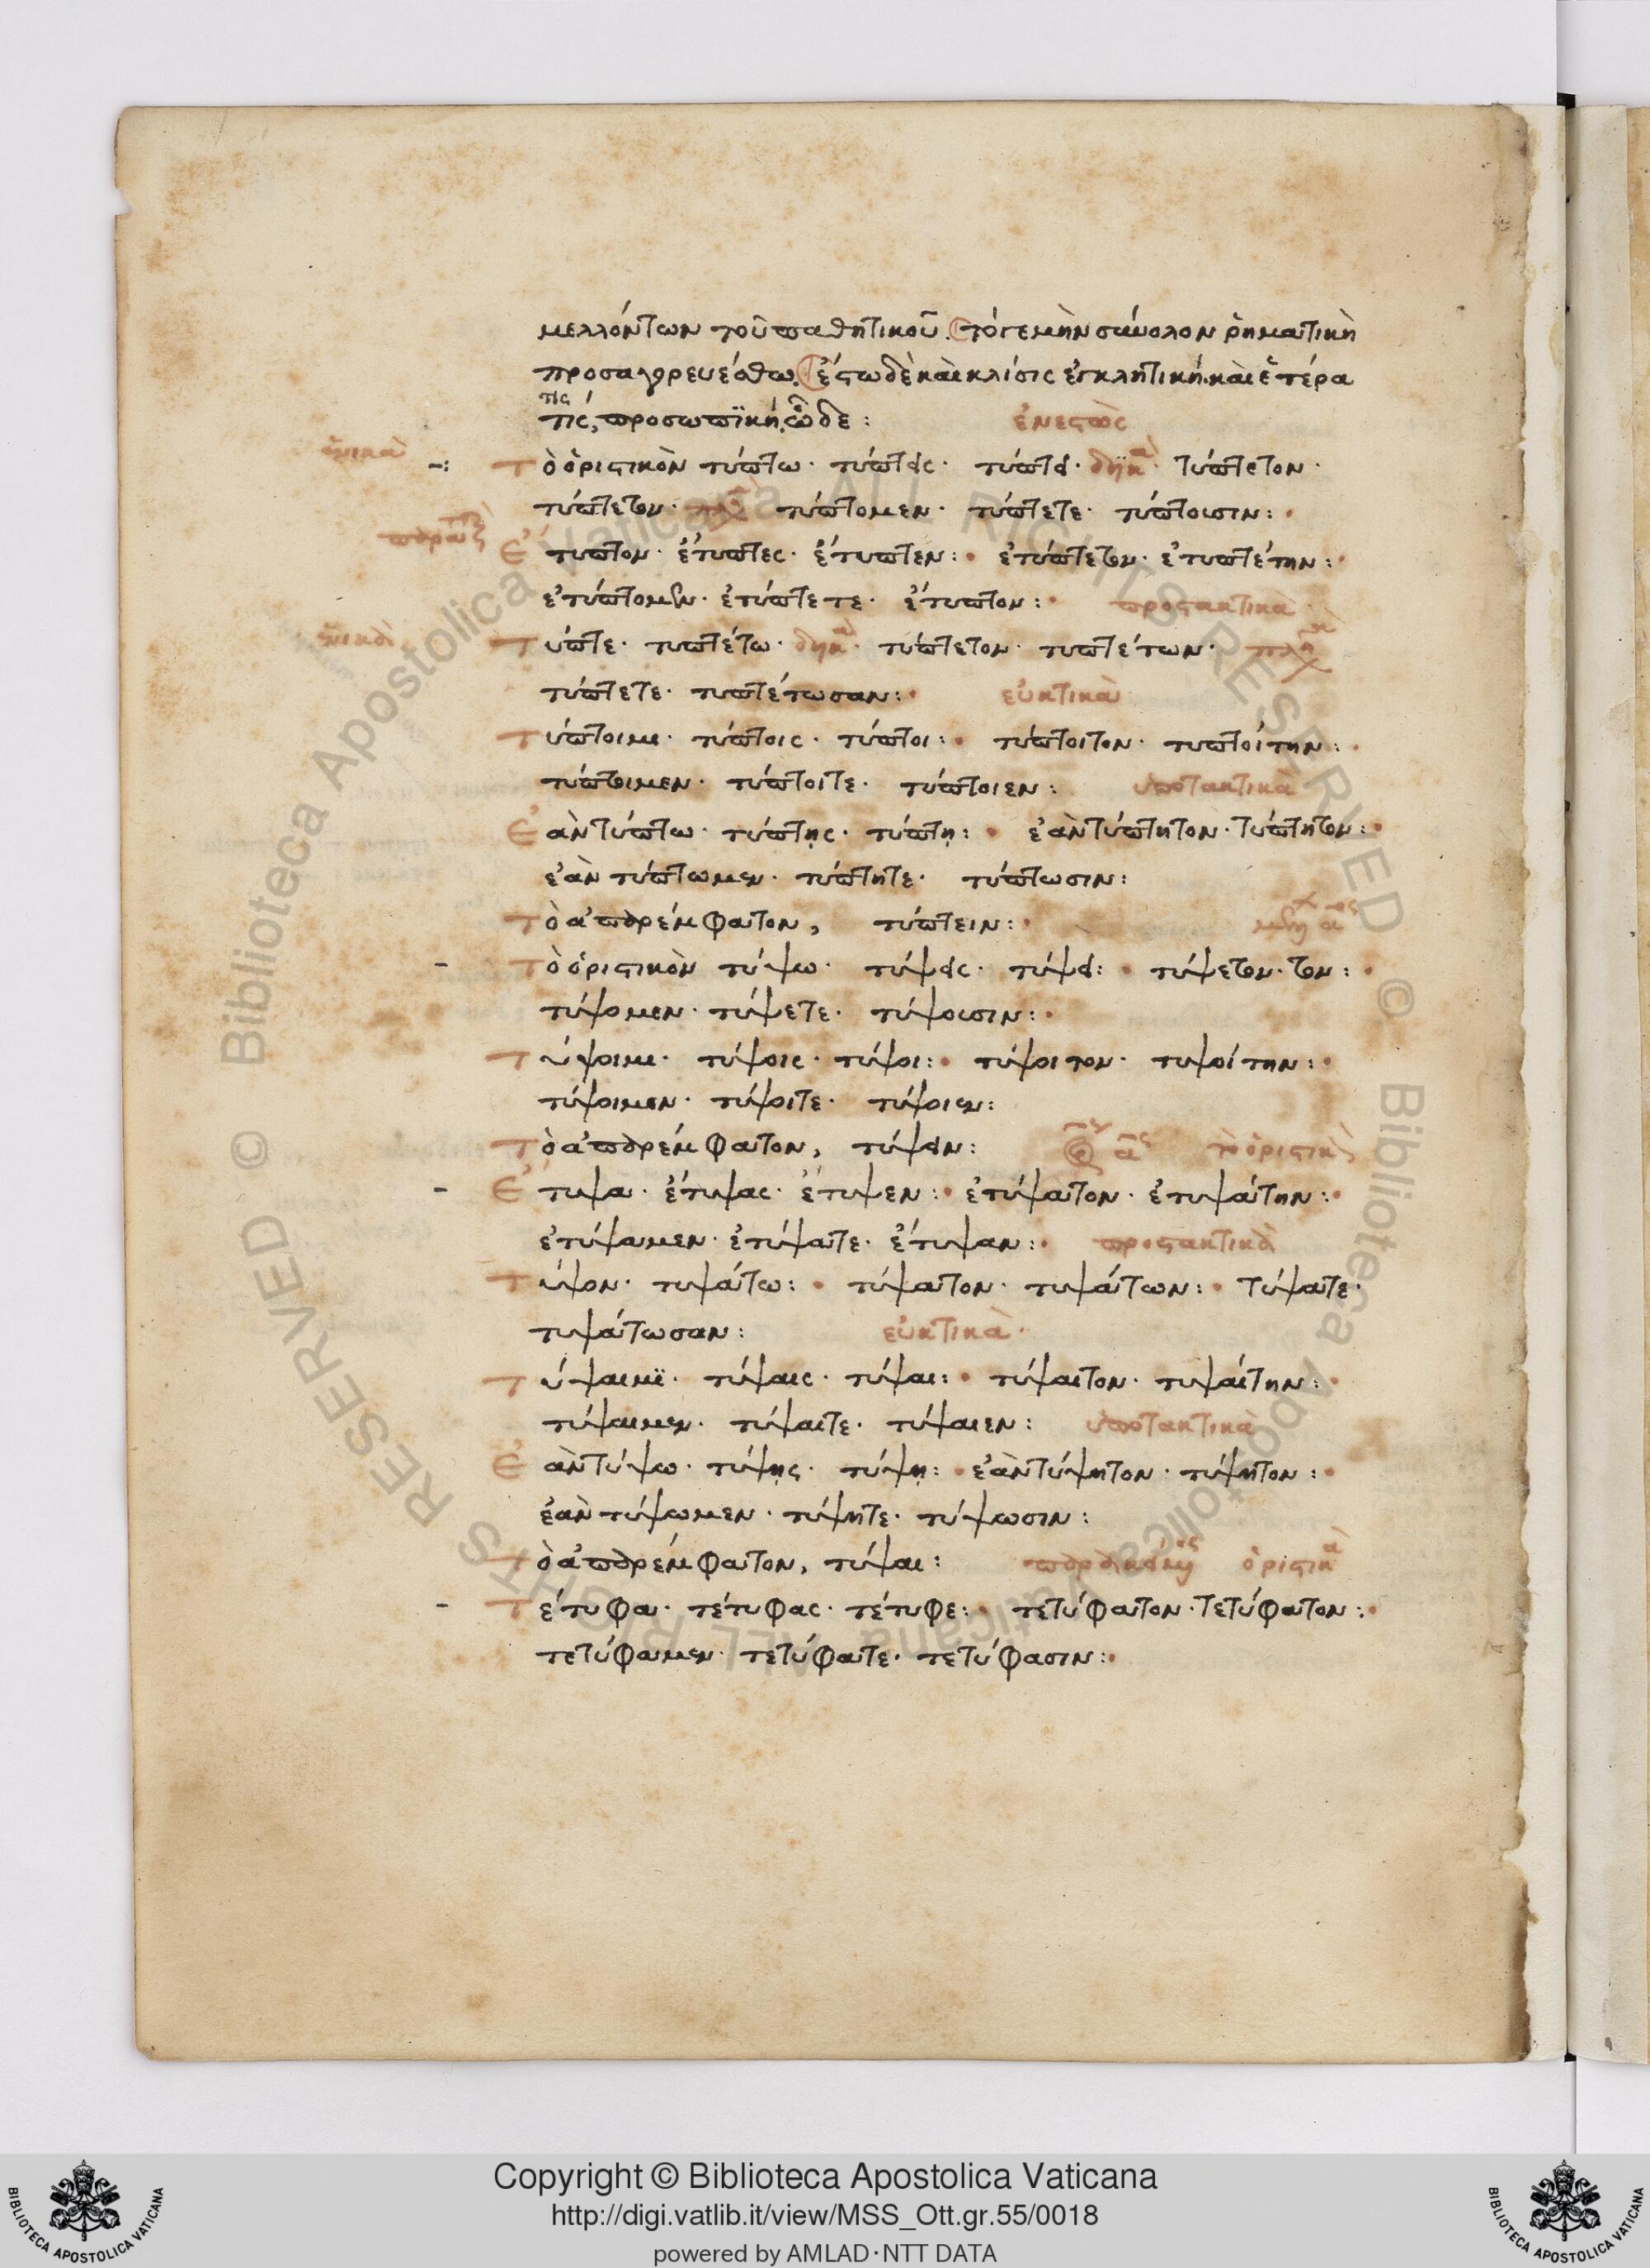 μελλόντων τοῦ παθητικοῦ. τό γε μὴν σύνολον ῥηματικὴ
προσαγορευέσθω. ἔστω δὲ καὶ κλίσις ἐγκλητική. καὶ ἑτέρα
τις
τίς, προσωπϊκή, ὧδε :
ἐνεστὼς
ἑνικὰ
-: Τὸ ὁριστικὸν τύπτω · τύπτεις · τύπτει · δϋκὰ · τύπτετον ·
τύπτετον · πλη τύπτομεν · τύπτετε · τύπτουσιν : ·
παρατξ
Ἔτυπτον · ἔτυπτες · ἔτυπτεν : · ἐτύπτετον · ἐτυπτέτην : ·
ἐτύπτομεν · ἐτύπτετε · ἔτυπτον : · προστακτικὰ
ἑνικὰ
Τύπτε · τυπτέτω · δϋκὰ · τύπτετον · τυπτέτων · πλη
τύπτετε · τυπτέτωσαν : · εὐκτικὰ
Τύπτοιμι · τύπτοις · τύπτοι : · τύπτοιτον · τυπτοίτην : ·
τύπτοιμεν · τύπτοιτε · τύπτοιεν : ὑποτακτικὰ
Ἐὰν τύπτω · τύπτῃς · τύπτῃ : · ἐὰν τύπτητον · τύπτητον : ·
ἐὰν τύπτωμεν · τύπτητε · τύπτωσιν :
Τὸ ἀπαρέμφατον, τύπτειν : ·
- Τὸ ὁριστικὸν τύψω · τύψεις · τύψει : · τύψετον · τον : ·
τύψομεν · τύψετε · τύψουσιν : ·
Τύψοιμι · τύψοις · τύψοι : · τύψοιτον · τυψοίτην : ·
τύψοιμεν · τύψοιτε · τύψοιεν :
Τὸ ἀπαρέμφατον, τύψειν : ᾶς τὸ ὁριστικὸν
- Ἔτυψα · ἔτυψας · ἔτυψεν : · ἐτύψατον · ἐτυψάτην : ·
ἐτύψαμεν · ἐτύψατε · ἔτυψαν : · προστακτικὰ
Τύψον · τυψάτω : · τύψατον · τυψάτων : · τύψατε ·
τυψάτωσαν : εὐκτικὰ ·
Τύψαιμϊ · τύψαις · τύψαι : · τύψαιτον · τυψαίτην : ·
τύψαιμεν · τύψαιτε · τύψαιεν : ὑποτακτικὰ
Ἐὰν τύψω · τύψῃς · τύψῃ : · ἐὰν τύψητον · τύψητον : ·
ἐὰν τύψωμεν · τύψητε · τύψωσιν :
Τὸ ἀπαρέμφατον, τύψαι : παρακείμς ὁριστικὰ
- Τέτυφα · τέτυφας · τέτυφε : · τετύφατον · τετύφατον : ·
τετύφαμεν · τετύφατε · τετύφασιν : ·
© Biblioteca Apostolica Vaticana ALL RIGHTS RESERVED © Biblioteca Apostolica Vaticana ALL RIGHTS RESERVED
Copyright © Biblioteca Apostolica Vaticana
http://digi.vatlib.it/view/MSS_Ott.gr.55/0018
powered by AMLAD·NTT DATA
BIBLIOTECA APOSTOLICA VATICANA
BIBLIOTECA APOSTOLICA VATICANA